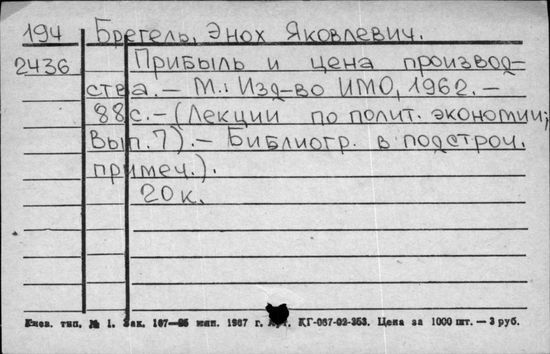 194 Брегель, Энох Яковлевич.
2436 Прибыль и цена производ-
ства. — М.: Изд-во ИМО, 1962. —
88с. — (Лекции по полит. экономии;
Вып. 7). — Библиогр. в подстроч.
примеч.).
20 к.
тип. № 1. Зак. 167— 1967 г. КГ-067-02-353. Цена за 1000 шт. — 3 руб.